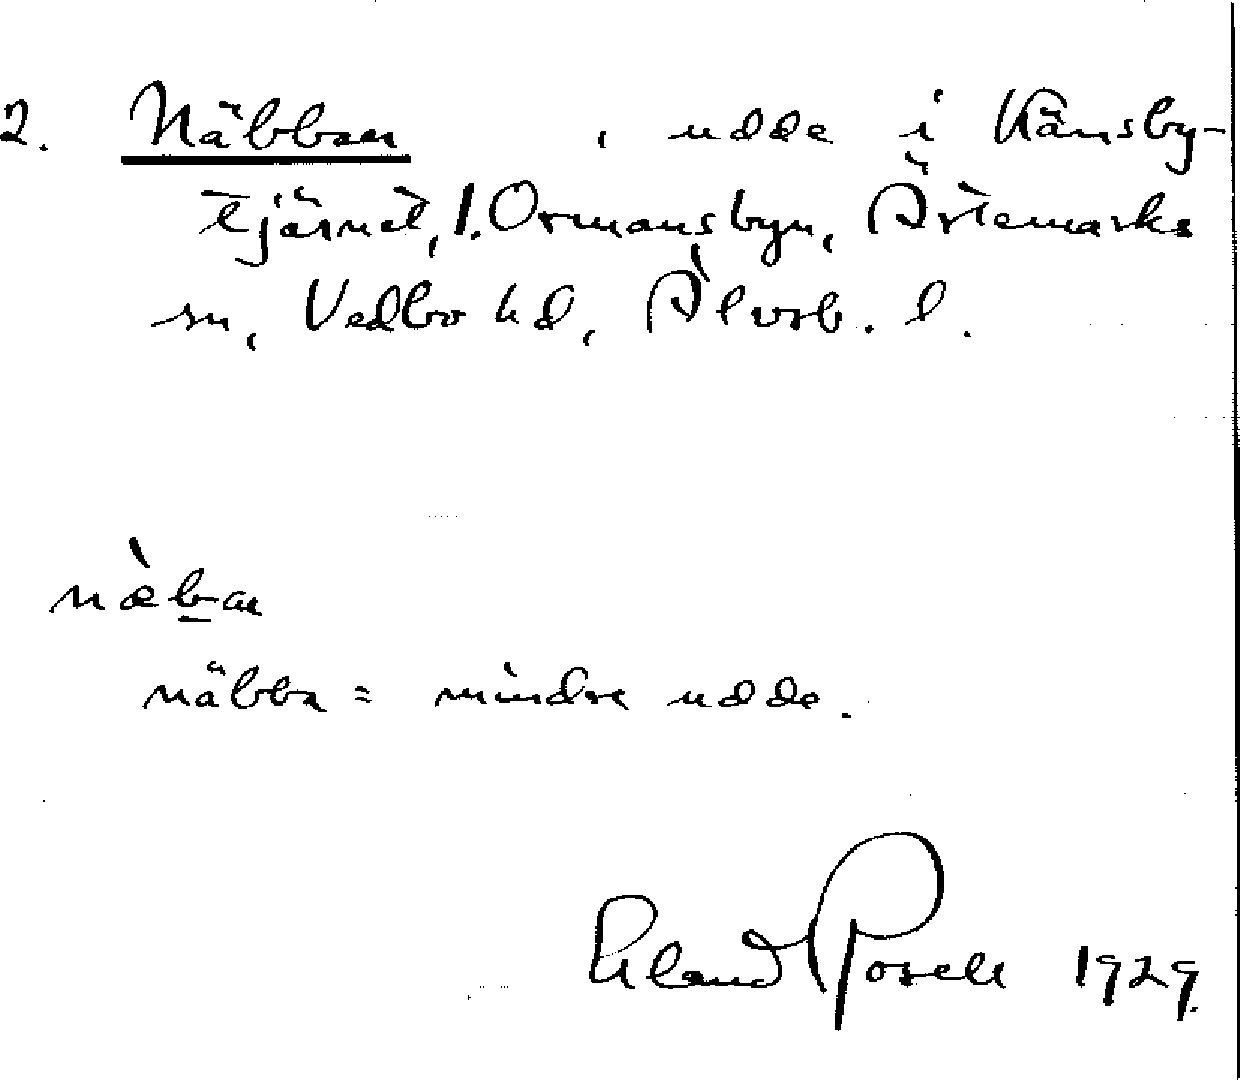 2. Näbban, udde i Hänsby-
tjärnet, l. Ormansbyn, Ärtemarks
sn, Vedbo hd, Älvsb. l.
næ̀ban
näbba = mindre udde.
Erland Rosell 1929.